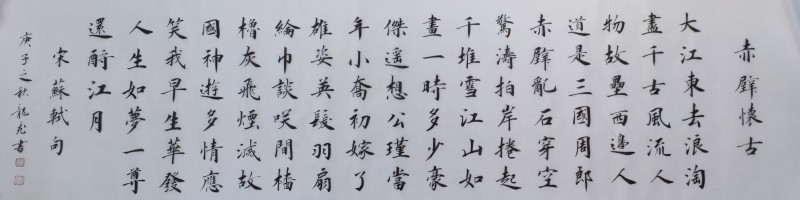 赤壁懷古
大江東去浪淘
盡千古風流人
物故壘西邊人
道是三國周郎
赤壁亂石穿空
驚濤拍岸捲起
千堆雪江山如
畫一時多少豪
傑遥想公瑾當
年小喬初嫁了
雄姿英髮羽扇
綸巾談咲間檣
櫓灰飛煙滅故
國神遊多情應
笑我早生華發
人生如夢一尊
還酹江月
宋蘇軾句
庚子之秋龍書